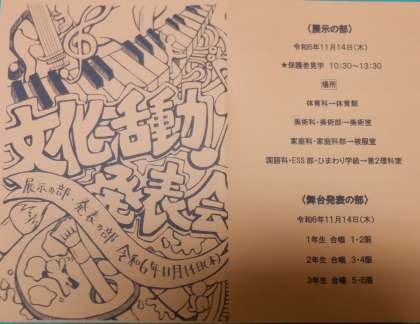 文化活動
発表会
展示の部・発表の部
令和6年11月14日(木)
〈展示の部〉
令和6年11月14日(木)
★保護者見学 10:30～13:30
場所
体育科→体育館
美術科・美術部→美術室
家庭科・家庭科部→被服室
国語科・ESS部・ひまわり学級→第2理科室
〈舞台発表の部〉
令和6年11月14日(木)
1年生 合唱 1・2限
2年生 合唱 3・4限
3年生 合唱 5・6限